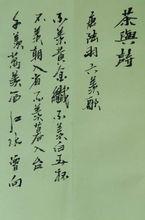 茶與詩
唐陸羽六羨歌
不羨黃金 不羨白玉杯
不羨朝入省不羨暮入台
千羨萬羨西江水曾向